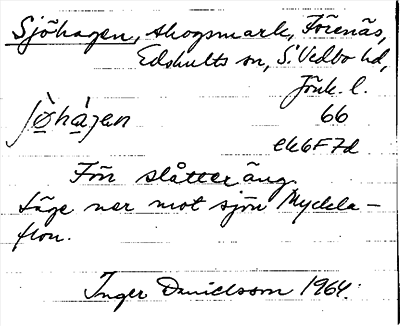 Sjöhagen, skogsmark, Förenäs,
Edshults sn, S. Vedbo hd,
Jönk. l.
jø̀hàgen 66
ek6F7d
För slåtteräng.
Läge ner mot sjön Myckla-
flon.
Inger Danielsson 1964.